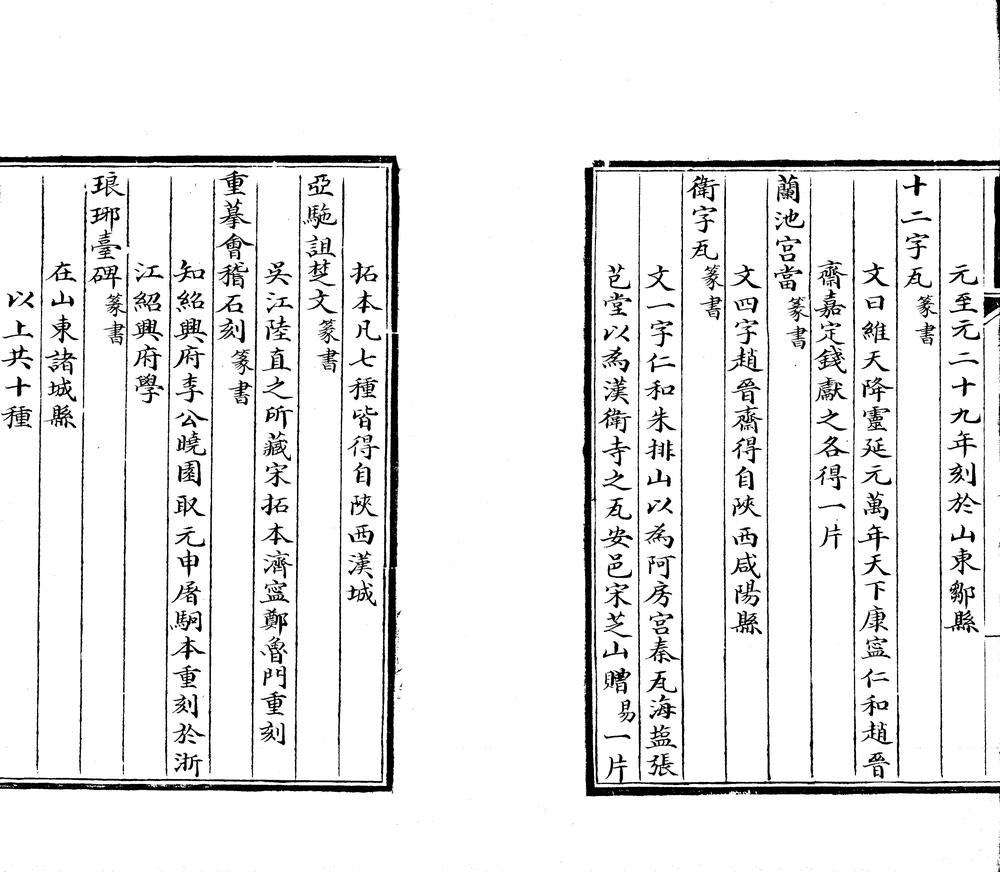 元至元二十九年刻於山東鄒縣
十二字瓦篆書
文曰維天降靈延元萬年天下康寍仁和趙晉
齋嘉定錢獻之各得一片
蘭池宮當篆書
文四字趙晉齋得自陝西咸陽縣
衛字瓦篆書
文一字仁和朱排山以為阿房宮秦瓦海盐張
芑堂以為漢衛寺之瓦安邑宋芝山贈易一片
拓本凡七種皆得自陝西漢城
亞駞詛楚文篆書
吳江陸直之所藏宋拓本濟寍鄭魯門重刻
重摹會稽石刻篆書
知紹興府李公曉園取元申屠駉本重刻於浙
江紹興府學
琅琊臺碑篆書
在山東諸城縣
以上共十種